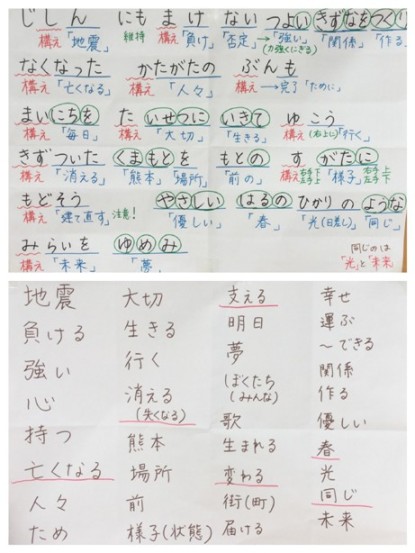 じしん にも まけ ない つよい きずなをつくり
構え「地震」 維持 構え「負け」「否定」→「強い」(力強くにぎる) 「関係」「作る」
なくなった かたがたの ぶんも
構え「亡くなる」 構え「人々」 構え→完了「ために」
まいにちを たいせつに いきて ゆこう
構え「毎日」 構え「大切」 「生きる」 構え(右上に)「行く」
きずついた くまもとを もとの すがたに
構え「消える」 「熊本」「場所」 「前の」 構え「様子」
もどそう やさしい はるの ひかりの ような
構え「建て直す」注意! 「優しい」 「春」 「光(日差し)」「同じ」
みらいを ゆめみ
構え「未来」 「夢」
同じのは
「光」と「未来」
地震
負ける
強い
心
持つ
亡くなる
人々
ため
大切
生きる
行く
消える
(失くなる)
熊本
場所
前
様子(状態)
支える
明日
夢
ぼくたち
(みんな)
歌
生まれる
変わる
街(町)
届ける
幸せ
運ぶ
〜できる
関係
作る
優しい
春
光
同じ
未来